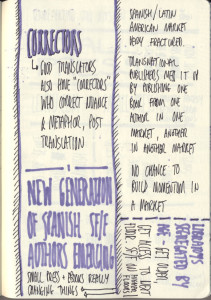 CORRECTORS
↳ GOOD TRANSLATORS
ALSO HAVE "CORRECTORS"
WHO CORRECT NUANCE
& METAPHOR, POST
TRANSLATION
NEW GENERATION
OF SPANISH SF/F
AUTHORS EMERGING
SMALL PRESS + EBOOKS REALLY
CHANGING THINGS
SPANISH/LATIN
AMERICAN MARKET
VERY FRACTURED.
TRANSNATIONAL
PUBLISHERS
BY PUBLISHING ONE
BOOK FROM ONE
AUTHOR IN ONE
MARKET, ANOTHER
IN ANOTHER MARKET
NO CHANCE TO
BUILD MOMENTUM IN
A MARKET
BY